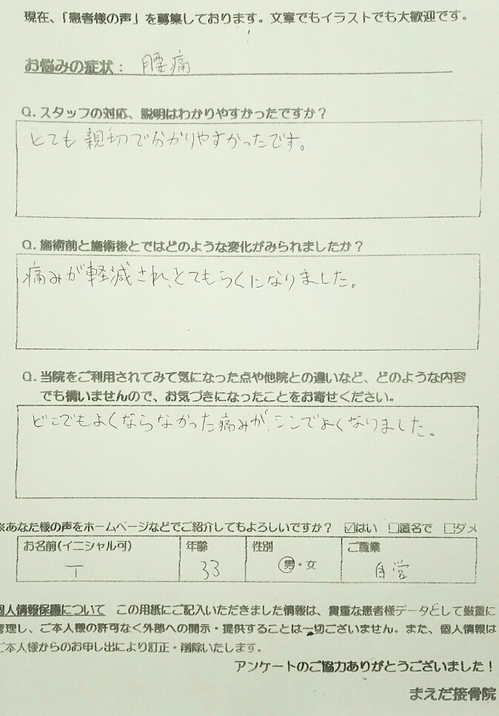 現在、「患者様の声」を募集しております。文章でもイラストでも大歓迎です。
お悩みの症状： 腰痛
Q. スタッフの対応、説明はわかりやすかったですか？
とても親切で分かりやすかったです。
Q. 施術前と施術後とではどのような変化がみられましたか？
痛みが軽減され、とてもらくになりました。
Q. 当院をご利用されてみて気になった点や他院との違いなど、どのような内容
でも構いませんので、お気づきになったことをお寄せください。
どこでもよくならなかった痛みが、ココでよくなりました。
※あなた様の声をホームページなどでご紹介してもよろしいですか？ ☑はい □匿名で □ダメ
お名前(イニシャル可) 年齢 性別 ご職業
T 33 男・女 自営
個人情報保護について この用紙にご記入いただきました情報は、貴重な患者様データとして厳重に
管理し、ご本人様の許可なく外部への開示・提供することは一切ございません。また、個人情報は
ご本人様からのお申し出により訂正・削除いたします。
アンケートのご協力ありがとうございました！
まえだ接骨院